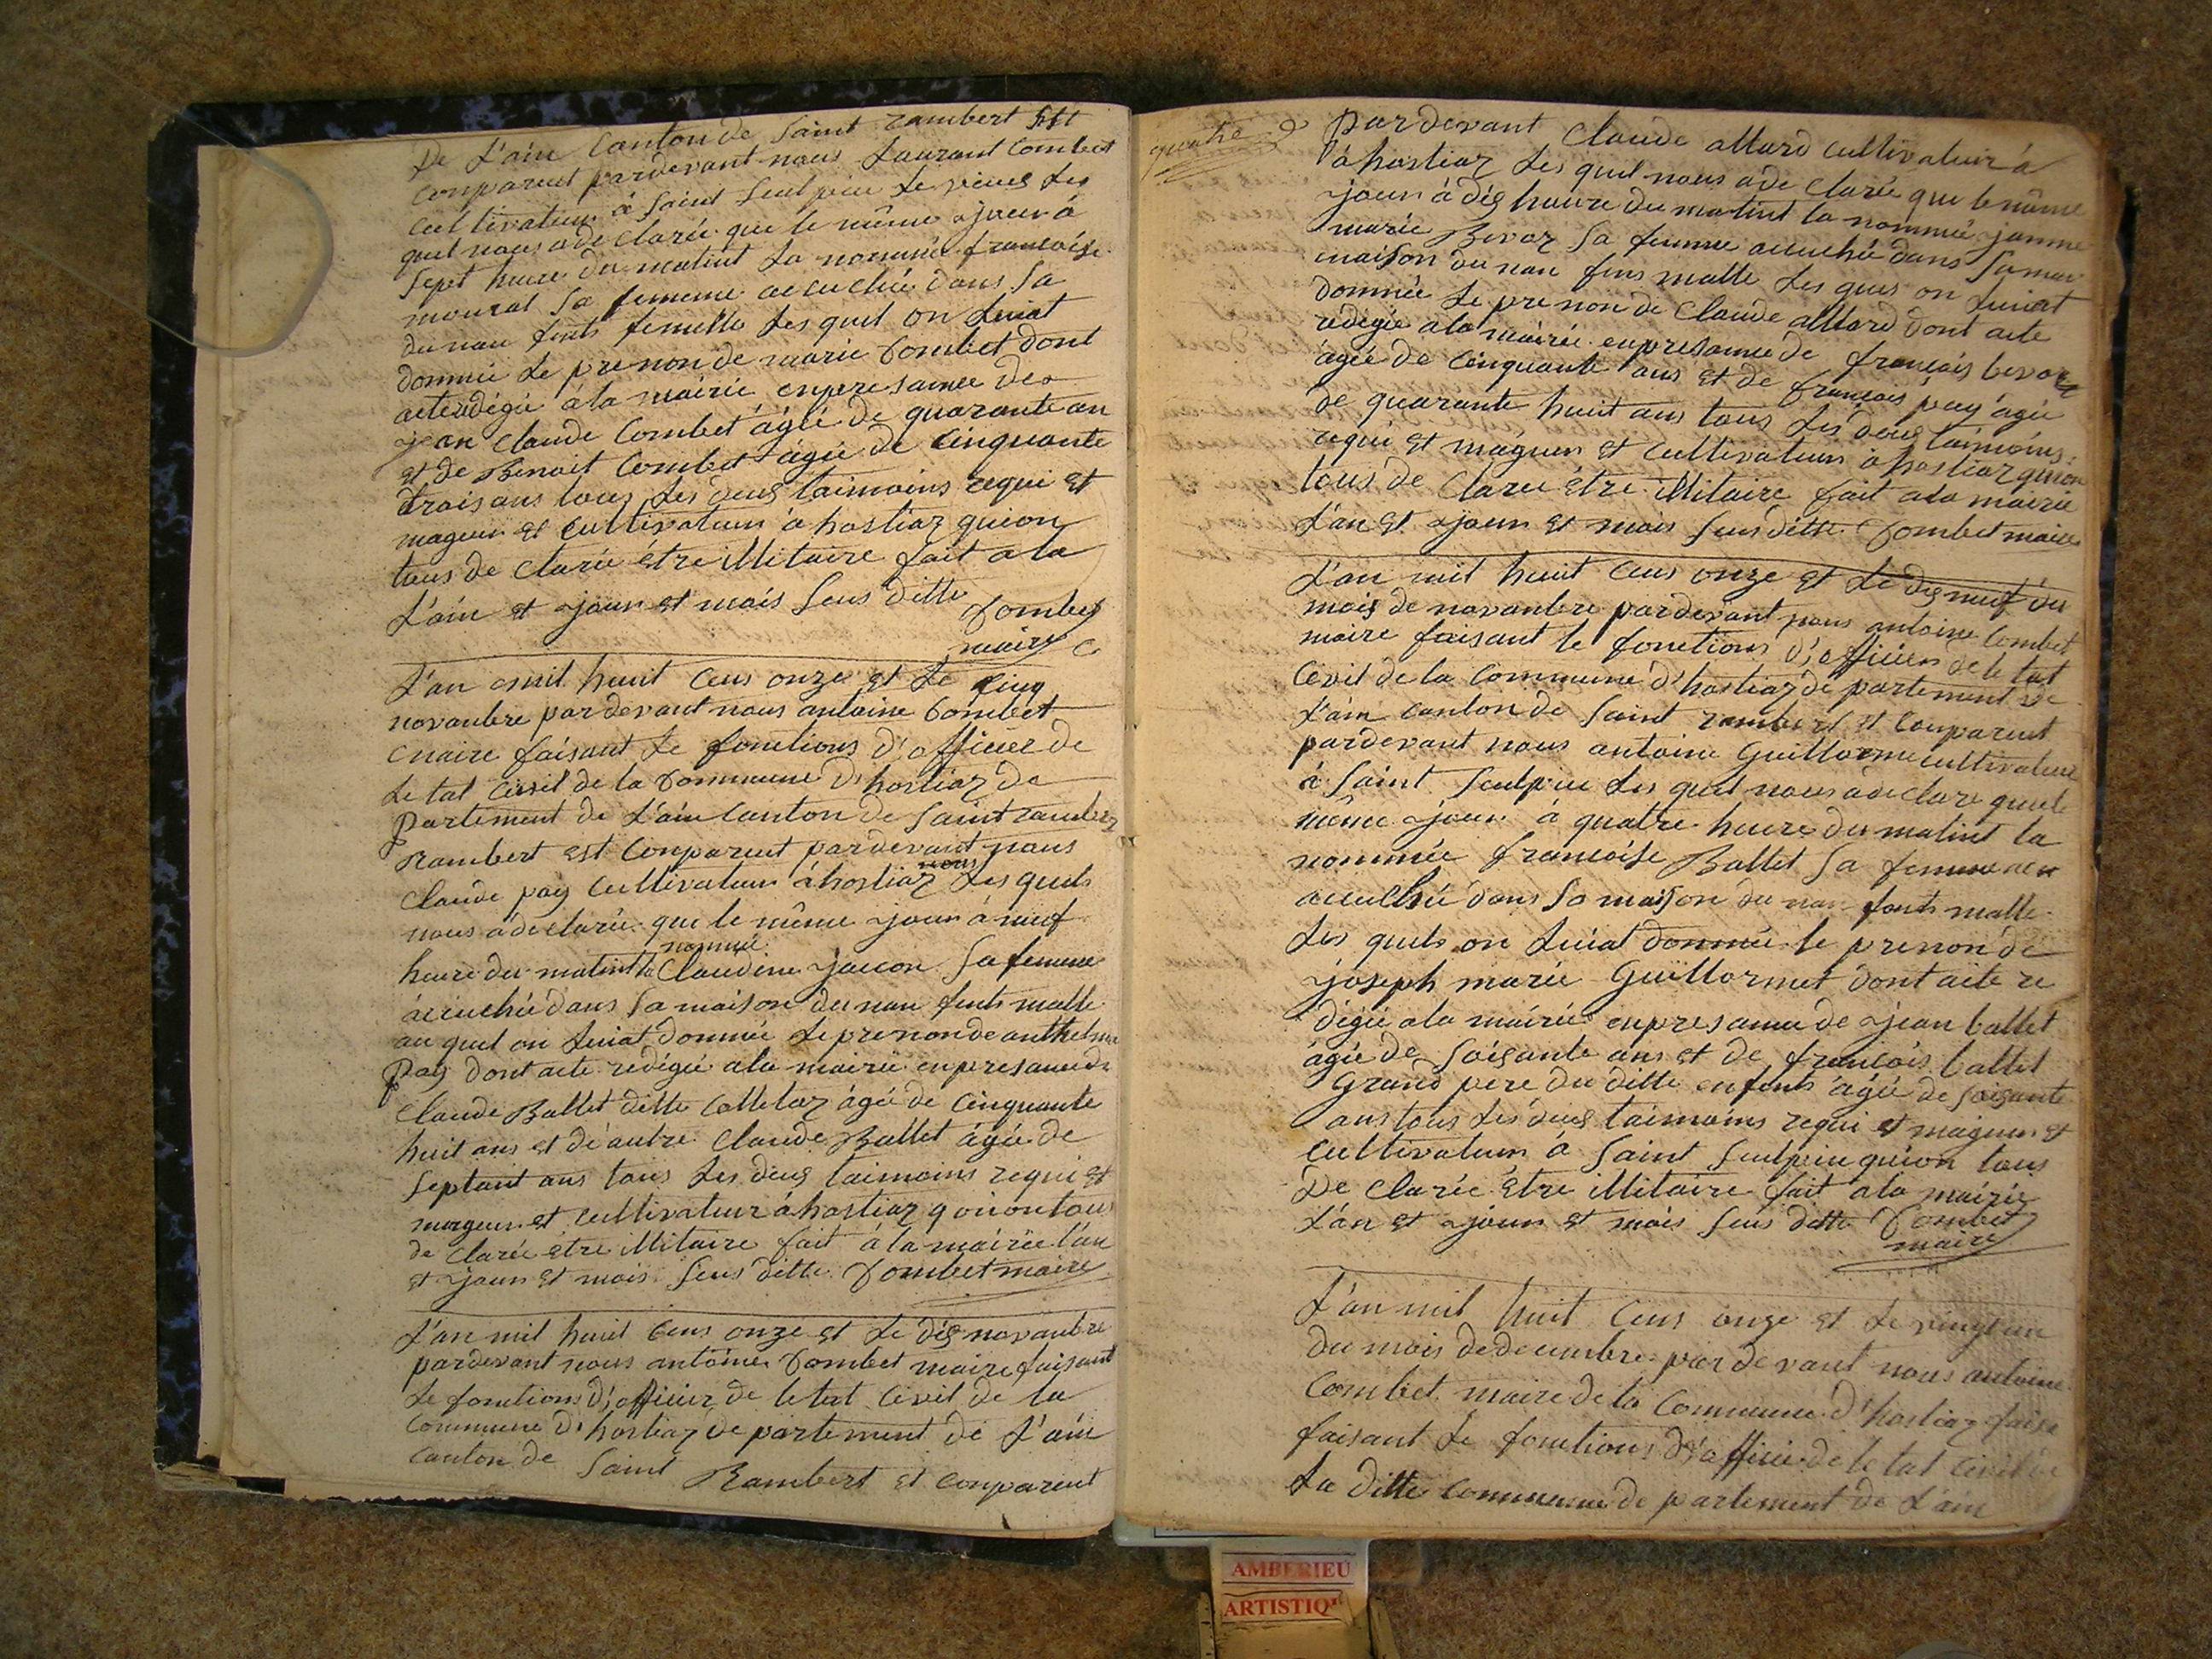 De L'ain Canton de Saint rambert Est
Conpareut pardevant nous Laurant Combet
Cultivateur à Saint Seulpice Le vieus Les
quel nous adeclarée que le mème ajour à
Sept heure du matint La nommée francoise
mourat Sa femme accuchée dans Sa
du nau fents femelle Les quel on Luiat
donnée Le prenon de marie Combet dont
acte redégie à la mairie enpresance de
jean Claude Combet àgée de quarante an
et de Benoit Combet àgée de Cinquante
trois ans tous Les deus taimoins requi et
mageur et Cultivateur à hostiaz quion
tous de Clarée étre illitaire fait a la
L'ain et ajour et mois Sus ditte Combet
maire
L'an mil huit Cens onze et Le Cinq
novanbre pardevant nous antoine Combet
maire faisant Le fonctions d'officier de
Le tat Civil de la Commune d'hostiaz de
partement de L'ain Canton de Saint rambert
Rambert est Conpareut pardevant nous
Claude pay Cultivateur à hostiaz nous Les quels
nous adeclarée que le mème ajour à neuf
heure du matint la nommée Claudine jaccon Sa femme
accuchée dans Sa maison du nau fents malle
au quel on Luiat donnée Le prenon de anthelme
pay dont acte redégie ala mairie enpresance de
Claude Ballet ditte Colletaz àgée de Cinquante
huit ans et de autre Claude Ballet àgée de
Septant ans tous Les deus taimoins requi et
mageur et Cultivateur à hostiaz quion tous
de Clarée étre illitaire fait à la mairie L'an
et ajour et mois Sus ditte Combet maire
L'an mil huit Cens onze et Le dis novanbre
pardevant nous antoine Combet maire faisant
Le fonctions d'officier de le tat Civil de la
Commune d'hostiaz de partement de L'ain
Canton de Saint Rambert et Conpareut
quatre
pardevant Claude allard Cultivateur à
à hostiaz Les quel nous adeClarée que le mème
jour à dis heure du matint la nommée janne
marie Bevoz Sa femme accuchée dans Sa mai
maison du nau fens malle Les ques on Luiat
donnée Le prenon de Claude allard dont acte
redegie ala mairie enpresance de francois bevoz
àgée de Cinquante ans et de francois pay àgée
de quarante huit ans tous Les deus taimoins
requi et mageur et Cultivateur à hostiaz quion
tous de Clarée étre illitaire fait ala mairie
L'an et ajour et mois Sus ditte Combet maire
L'an mil huit Cens onze et Le dis neuf du
mois de novanbre pardevant nous antoine Combet
maire faisant le fonctions d'officier de le tat
Civil de la Commune d'hostiaz de partement de
L'ain Canton de Saint rambert et Conpareut
pardevant nous antoine Guillorme Cultivateur
à Saint Seulpice Les quel nous à declare que le
mème ajour à quatre heure du matint la
nommée francoise Ballet Sa femme
accuchée dans Sa maison du nau fents malle
Les quels on Luiat donnée le prenon de
joseph marie Guillormet dont acte re
dégie ala mairie enpresance de ajean ballet
àgée de Soisante ans et de francois ballet
Grand pere du ditte enfents àgée de Soisante
ans tous Les deus taimoins requi et mageur et
Cultivateur à Saint Seulpice quion tous
De Clarée étre illitaire fait ala mairie
L'an et ajour et mois Sus ditte Combet
maire
L'an mil huit Cens onze et Le vingt un
du mois de decembre pardevant nous antoine
Combet maire de la Commune d'hostiaz faisa
faisant Le fonctions d'officie de le tat Civil de
La ditte Commune de partement de L'ain
AMBERIEU
ARTISTIQ